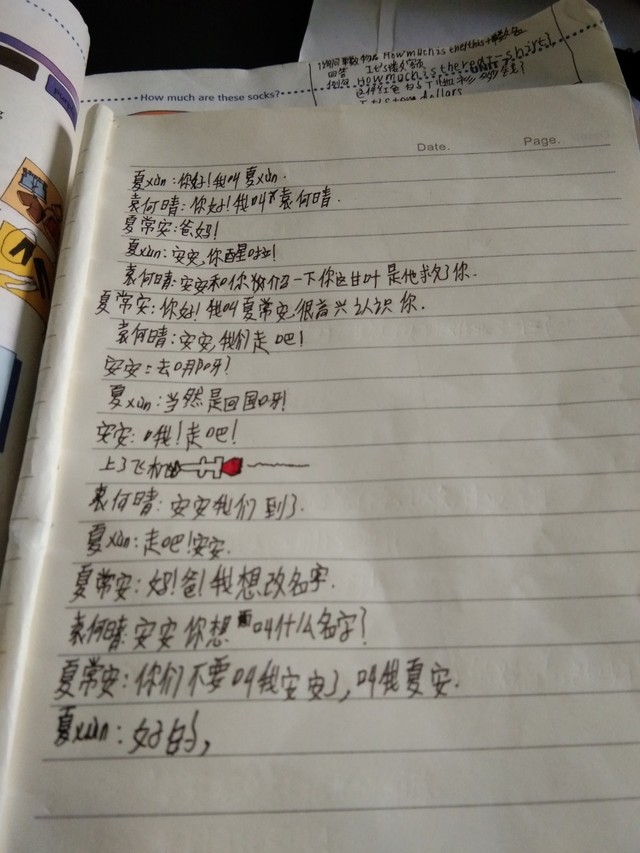 How much are these socks?
How much is the/this+
回答 It's
例句 How much is there T-shirt?
dollars
Date.
Page.
夏xùn:你好!我叫夏xùn.
袁何晴:你好!我叫袁何晴.
夏常安:爸妈!
夏xùn:安安,你醒啦!
袁何晴:安安和你介绍一下你这甘叶是他救了你.
夏常安:你好!我叫夏常安,很高兴认识你.
袁何晴:安安,我们走吧!
安安:去哪呀?
夏xùn:当然是回国呀!
安安:哦!走吧!
上了飞机
袁何晴:安安我们到了.
夏xùn:走吧!安安.
夏常安:好!爸!我想改名字.
袁何晴:安安你想叫什么名字?
夏常安:你们不要叫我安安了,叫我夏安.
夏xùn:好的,